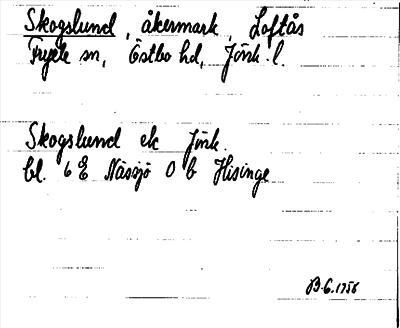 Skogslund, åkermark, Loftås
Tryele sn, Östbo hd, Jönk. l.
Skogslund ek Jönk.
bl. 6 E Nässjö O b Hisinge
B.G. 1758